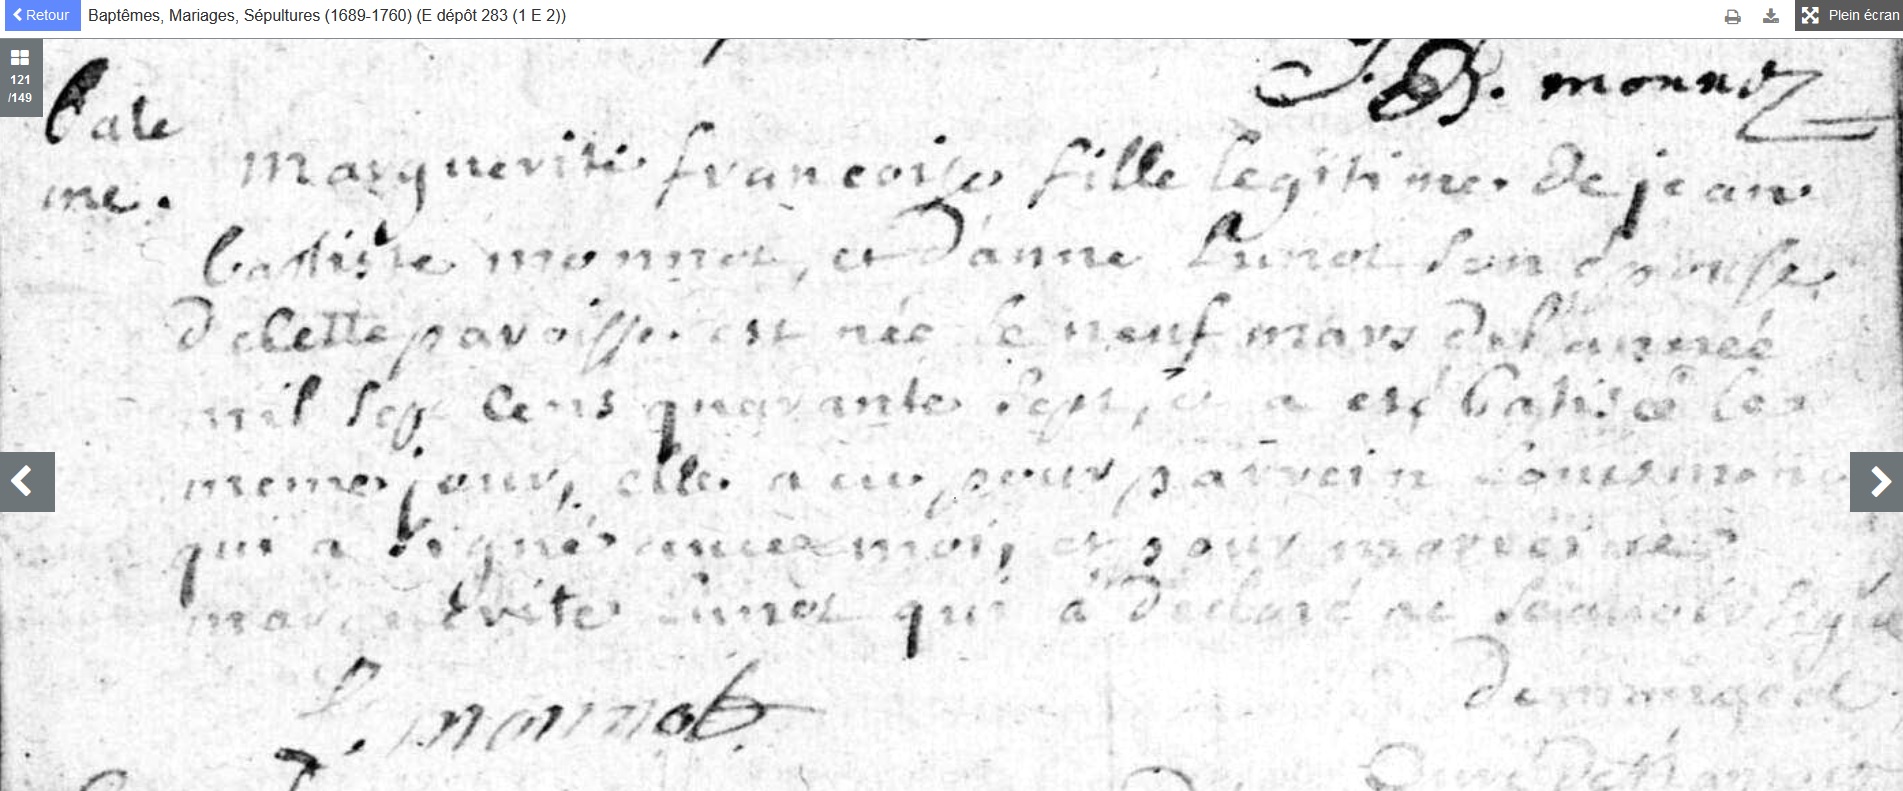 Retour Baptêmes, Mariages, Sépultures (1689-1760) (E dépôt 283 (1 E 2)) Plein écran
121
/149
J. B. monnot
bate
me.
Marguerite francoise fille legitime de jean
batiste monnot, et d'anne Lunot son epouse
de cette paroisse est née le neuf mars de l'année
mil sept cens quarante sept, et a esté batisée le
meme jour, elle a eu pour parrein Louis monnot
qui a signé avec moi, et pour marreine
marguerite Lunot qui a declaré ne scauoir signé
L. monnot